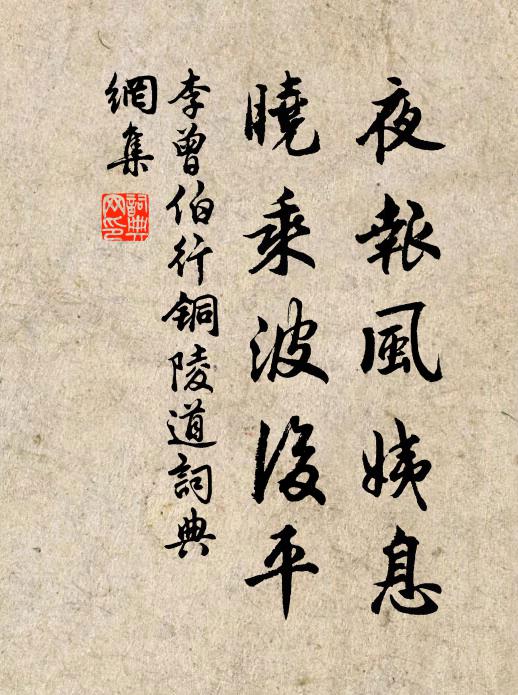 夜報風姨息
曉乘波後平
李曾伯行銅陵道詞典
網集
詞典
网印